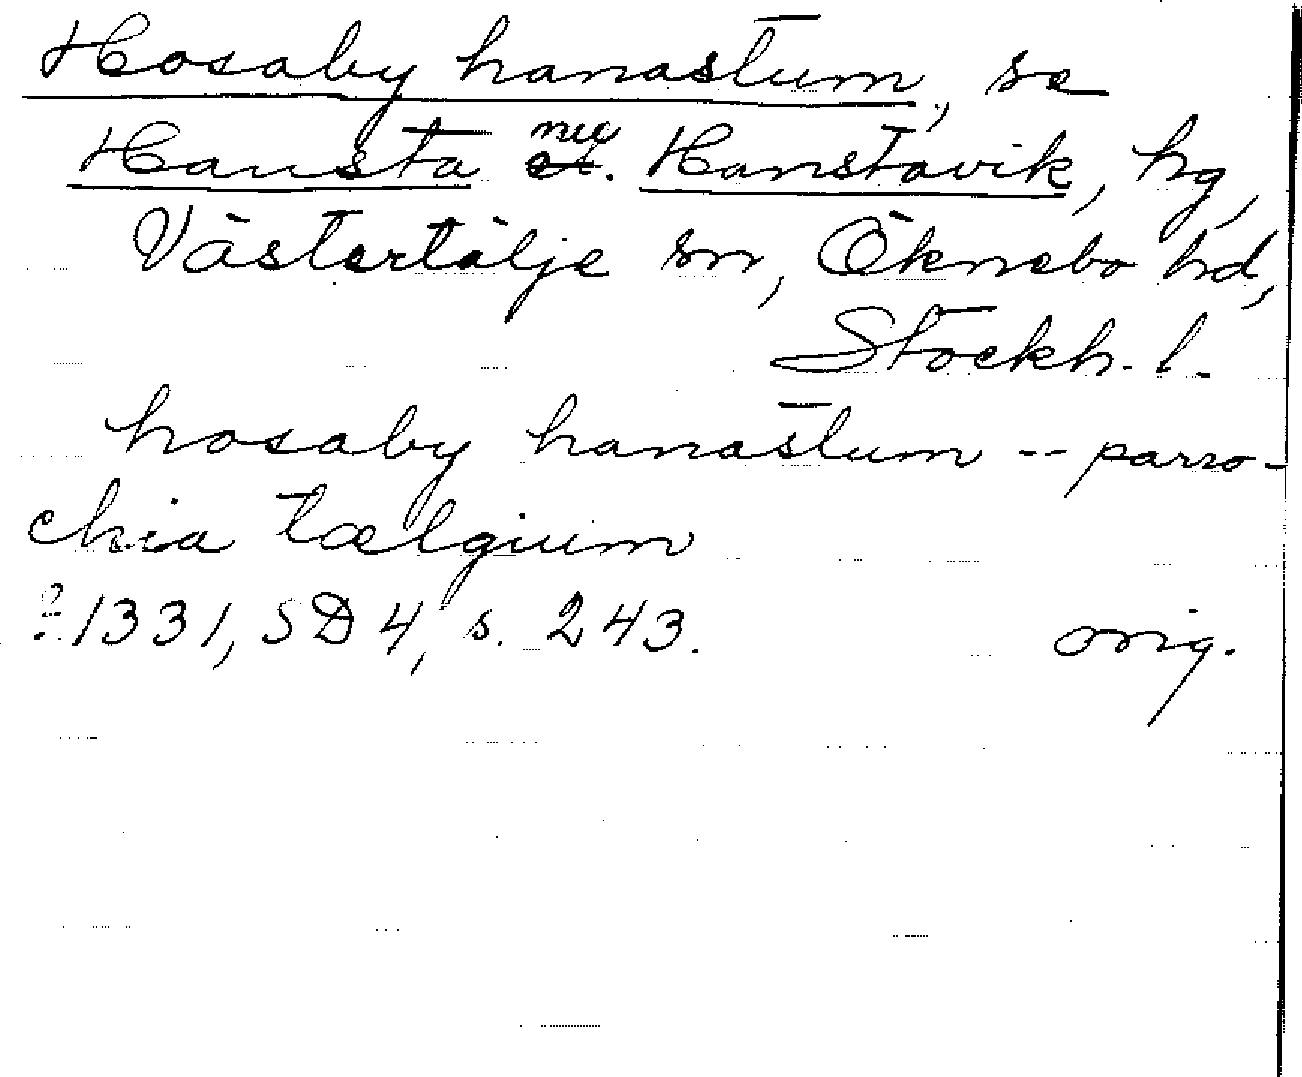 Hosaby hanastum, se
Hansta nu Hanstavik, hg,
Västertälje sn, Öknebo hd,
Stockh. l.
hosaby hanastum -- parro-
chia tælgium
1331, SD 4, s. 243. orig.